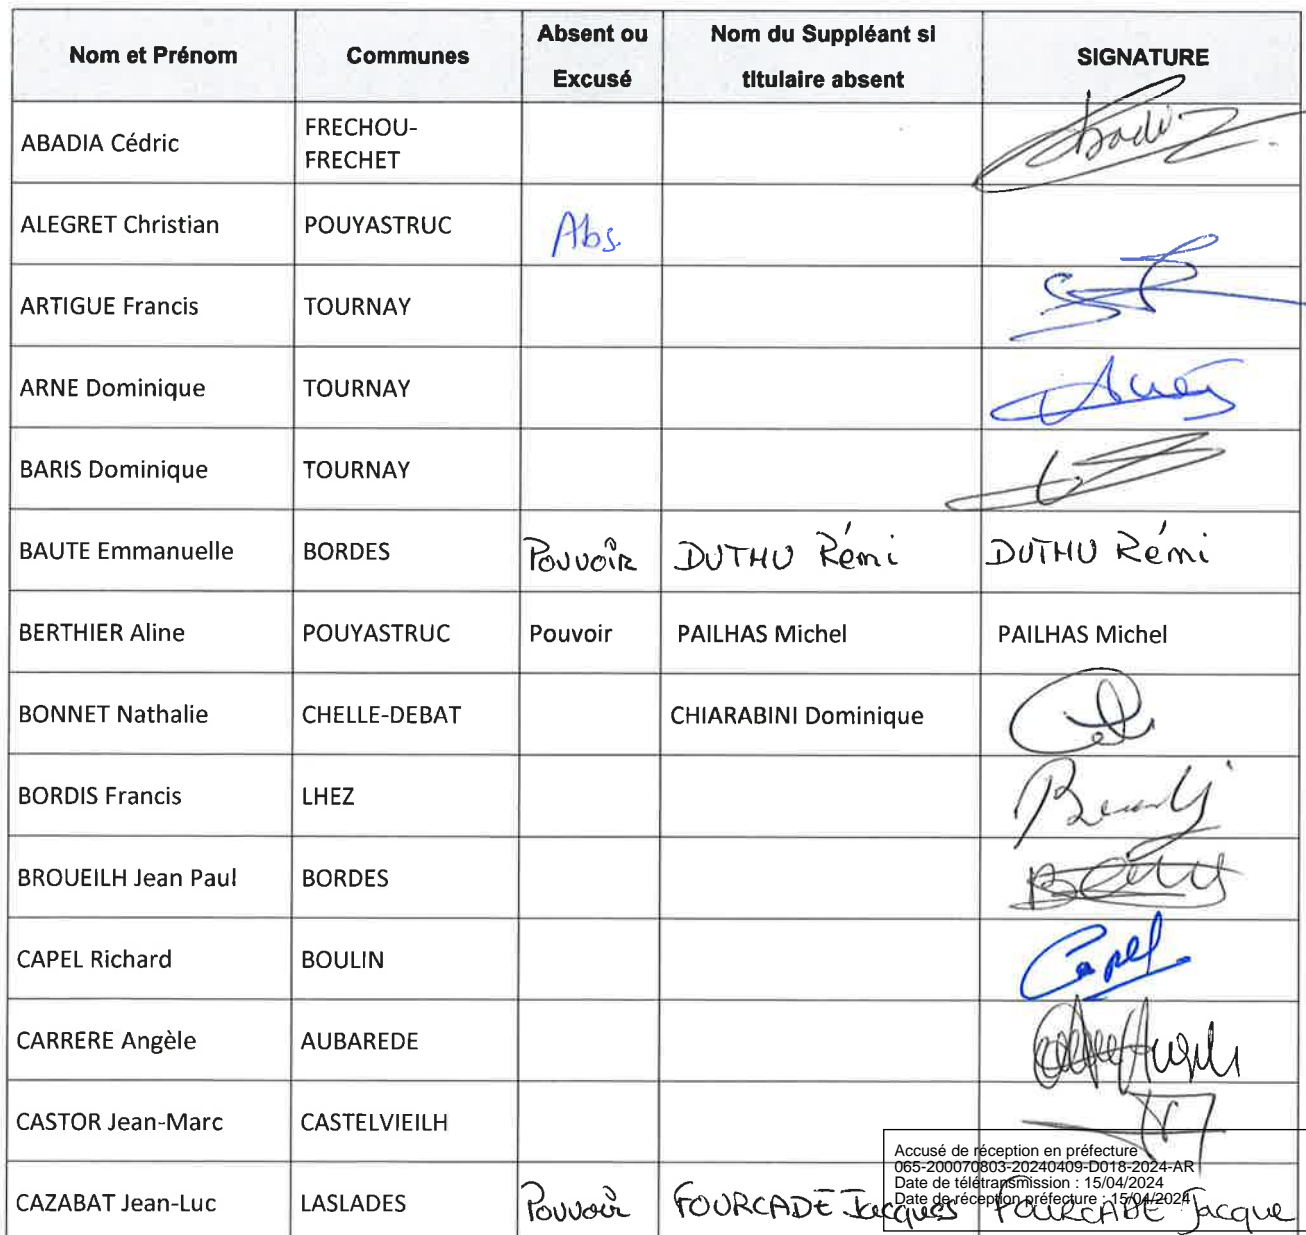 Nom et Prénom Communes Absent ou Excusé Nom du Suppléant si titulaire absent SIGNATURE
ABADIA Cédric FRECHOU-FRECHET
ALEGRET Christian POUYASTRUC Abs.
ARTIGUE Francis TOURNAY
ARNE Dominique TOURNAY
BARIS Dominique TOURNAY
BAUTE Emmanuelle BORDES Pouvoir DUTHU Rémi DUTHU Rémi
BERTHIER Aline POUYASTRUC Pouvoir PAILHAS Michel PAILHAS Michel
BONNET Nathalie CHELLE-DEBAT CHIARABINI Dominique
BORDIS Francis LHEZ
BROUEILH Jean Paul BORDES
CAPEL Richard BOULIN Capel
CARRERE Angèle AUBAREDE
CASTOR Jean-Marc CASTELVIEILH
Accusé de réception en préfecture
065-200070803-20240409-D018-2024-AR
Date de télétransmission : 15/04/2024
Date de réception préfecture : 15/04/2024
CAZABAT Jean-Luc LASLADES Pouvoir FOURCADE Jacques FOURCADE Jacque